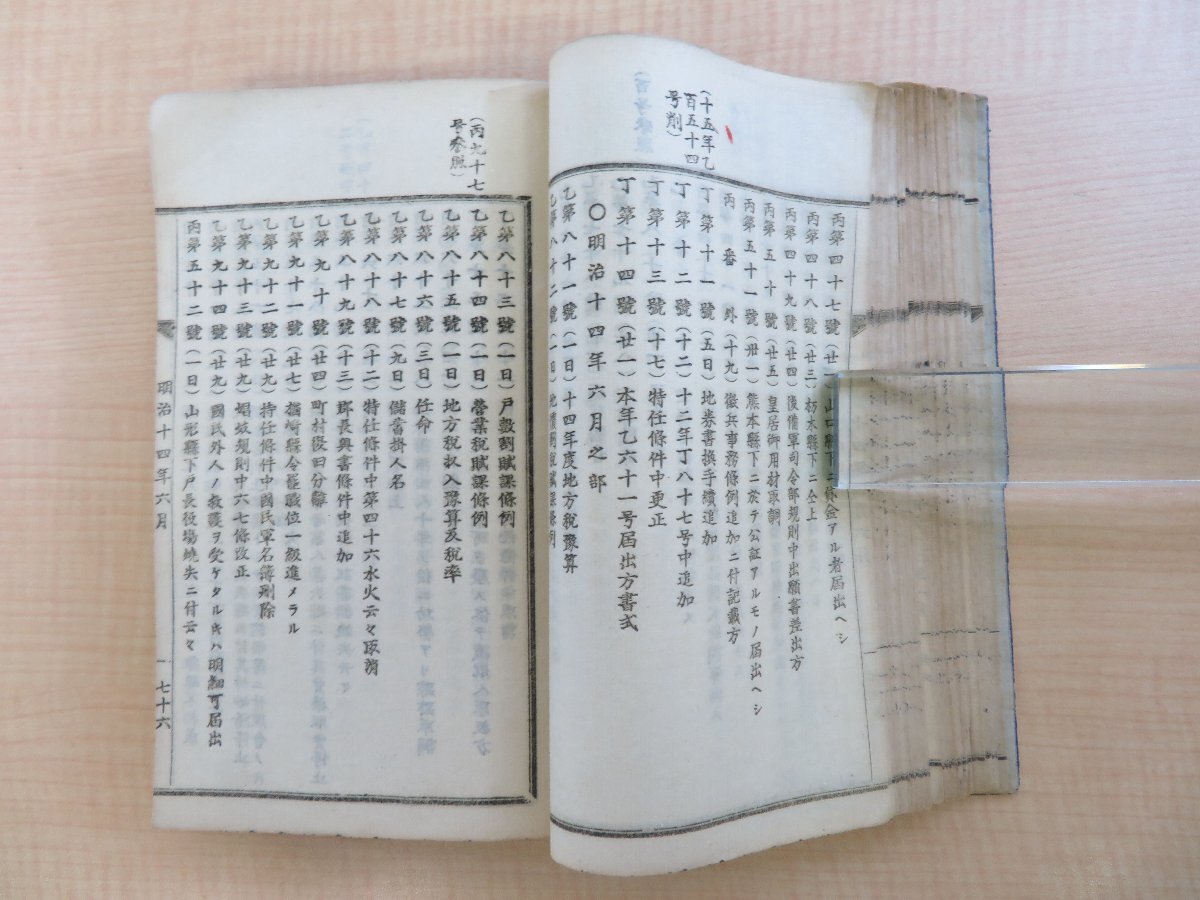 (十五年乙
百五十四
号削)
丙第四十七號(廿 山口縣下ニ貸金アル者届出ヘシ
丙第四十八號(廿三)栃木縣下ニ仝上
丙第四十九號(廿四)後備軍司令部規則中出願書差出方
丙第五十號(廿五)皇居御用材取調
丙第五十一號(卅一)熊本縣下ニ於テ公証アルモノ届出ヘシ
丙番外(十九)徴兵事務條例追加ニ付記載方
丁第十一號(五日)地券書換手續追加
丁第十二號(十二)十二年丁八十七号中追加
丁第十三號(十七)特任條件中更正
丁第十四號(廿一)本年乙六十一号届出方書式
〇明治十四年六月之部
乙第八十一號(一日)十四年度地方税豫算
乙第八十二號(一日)地
(丙九十七
号参照)
乙第八十三號(一日)戸數割賦課條例
乙第八十四號(一日)營業税賦課條例
乙第八十五號(一日)地方税収入豫算及税率
乙第八十六號(三日)任命
乙第八十七號(九日)備荒掛人名
乙第八十八號(十二)特任條件中第四十六水火云々取消
乙第八十九號(十三)郡長興書條件中追加
乙第九十號(廿四)町村役田分離
乙第九十一號(廿七)縣令 職位一級進メラル
乙第九十二號(廿九)特任條件中國民軍名簿刪除
乙第九十三號(廿九)娼妓規則中六七條改正
乙第九十四號(廿九)國民外人ノ救護ヲ受ケタルキハ明細可届出
丙第五十二號(一日)山形縣下戸長役場焼失ニ付云々
明治十四年六月
一七十六